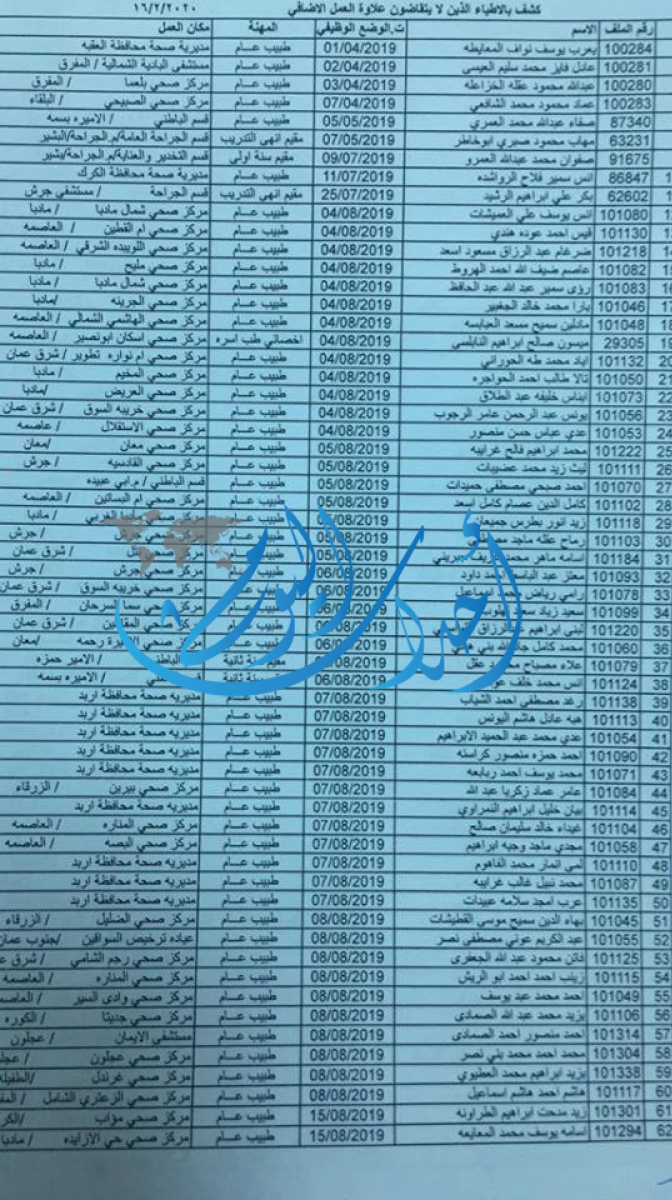 كشف بالاطباء الذين لا يتقاضون علاوة العمل الاضافي ١٦/٢/٢٠٢٠
رقم الملف الاسم ت.الوضع الوظيفي المهنة مكان العمل
100284 يعرب يوسف نواف المعايطه 01/04/2019 طبيب عــام مديرية صحة محافظة العقبه
100281 عادل فايز محمد سليم العيسى 02/04/2019 طبيب عــام مستشفى البادية الشمالية / المفرق
100280 عبدالله محمود عقله الخزاعله 03/04/2019 طبيب عــام مركز صحي بلعما / المفرق
100283 عماد محمود محمد الشافعي 07/04/2019 طبيب عــام مركز صحي الصبيحي / البلقاء
87340 صفاء عبدالله محمد العمري 05/05/2019 طبيب عــام قسم الباطني / الاميره بسمه
63231 مهاب محمود صبري ابوخاطر 07/05/2019 مقيم انهى التدريب قسم الجراحة العامة/م.الجراحة/البشير
91675 صفوان محمد عبدالله العمرو 09/07/2019 مقيم سنة اولى قسم التخدير والعناية/م.الجراحة/بشير
86847 انس سمير فلاح الرواشده 11/07/2019 طبيب عــام مديرية صحة محافظة الكرك
62602 بكر علي ابراهيم الرشيد 25/07/2019 مقيم انهى التدريب قسم الجراحة / مستشفى جرش
101080 انس يوسف علي العميشات 04/08/2019 طبيب عــام مركز صحي شمال مادبا / مادبا
101130 قيس احمد عوده هندي 04/08/2019 طبيب عــام مركز صحي ام القطين / العاصمه
101218 ضرغام عبد الرزاق مسعود اسعد 04/08/2019 طبيب عــام مركز صحي اللويبده الشرقي / العاصمه
101082 عاصم ضيف الله احمد الهروط 04/08/2019 طبيب عــام مركز صحي مليح / مادبا
101083 رؤى سمير عبد الله عبد الحافظ 04/08/2019 طبيب عــام مركز صحي شمال مادبا / مادبا
101046 يارا محمد خالد الجغبير 04/08/2019 طبيب عــام مركز صحي الجرينه /مادبا
101048 مادلين سميح مسعد العبابسه 04/08/2019 طبيب عــام مركز صحي الهاشمي الشمالي / العاصمه
29305 ميسون صالح ابراهيم النابلسي 04/08/2019 اخصائي طب اسره مركز صحي اسكان ابونصير / العاصمه
101132 اياد محمد طه الحوراني 04/08/2019 طبيب عــام مركز صحي ام نواره تطوير / شرق عمان
101050 تالا طالب احمد الحواجره 04/08/2019 طبيب عــام مركز صحي المخيم / مادبا
101073 ايناس خليفه عبد الطلاق 04/08/2019 طبيب عــام مركز صحي العريض /مادبا
101056 يونس عبد الرحمن عامر الرجوب 04/08/2019 طبيب عــام مركز صحي خريبه السوق / شرق عمان
101053 عدي عباس حسن منصور 04/08/2019 طبيب عــام مركز صحي الاستقلال / عاصمه
101222 محمد ابراهيم فالح غرايبه 05/08/2019 طبيب عــام مركز صحي معان /معان
101111 ليث زيد محمد عضيبات 05/08/2019 طبيب عــام مركز صحي القادسيه / جرش
101070 احمد صبحي مصطفى حميدات 05/08/2019 طبيب عــام قسم الباطني / م.ابي عبيده
101102 كامل الدين عصام كامل اسعد 05/08/2019 طبيب عــام مركز صحي ام البساتين / العاصمه
101118 زيد انور بطرس جميعان 05/08/2019 طبيب عــام مركز صحي الغربي / مادبا
101103 رماح عقله ماجد 05/08/2019 طبيب عــام مركز صحي / جرش
101184 اسامه ماهر محمد 05/08/2019 طبيب عــام مركز صحي / شرق عمان
101093 معتز عبد الباسط داود 06/08/2019 طبيب عــام مركز صحي / جرش
101078 رامي رياض اسماعيل 06/08/2019 طبيب عــام مركز صحي خريبه السوق / شرق عمان
101099 سعيد زياد سعيد 06/08/2019 طبيب عــام مركز صحي سما السرحان / المفرق
101220 لبنى ابراهيم الرزاق طبيب عــام مركز صحي المقابلين / شرق عمان
101060 محمد كامل 06/08/2019 طبيب عــام مركز صحي الاميرة رحمه /معان
101079 علاء مصباح عقل مقيم سنة ثانية الباطني / الامير حمزه
101124 انس محمد خلف 06/08/2019 سنة ثانية / الاميره بسمه
101138 رغد مصطفى احمد الشياب 07/08/2019 طبيب عــام مديريه صحة محافظة اربد
101113 هبه عادل هاشم اليونس 07/08/2019 طبيب عــام مديريه صحة محافظة اربد
101054 عدي محمد عبد الحميد الابراهيم 07/08/2019 طبيب عــام مديريه صحة محافظة اربد
101090 احمد حمزه منصور كراسنه 07/08/2019 طبيب عــام مديريه صحة محافظة اربد
101071 محمد يوسف احمد ربابعه 07/08/2019 طبيب عــام مديريه صحة محافظة اربد
101084 عامر عماد زكريا عبد الله 07/08/2019 طبيب عــام مركز صحي بيرين / الزرقاء
101114 بيان خليل ابراهيم النمراوي 07/08/2019 طبيب عــام مديريه صحة محافظة اربد
101104 غيداء خالد سليمان صالح 07/08/2019 طبيب عــام مركز صحي المناره / العاصمه
101058 مجدي ماجد وجيه ابراهيم 07/08/2019 طبيب عــام مركز صحي البصه / العاصمه
101110 لمى انمار محمد الفاهوم 07/08/2019 طبيب عــام مديريه صحة محافظة اربد
101087 محمد نبيل غالب غرايبه 07/08/2019 طبيب عــام مديريه صحة محافظة اربد
101135 عرب امجد سلامه عبيدات 07/08/2019 طبيب عــام مديريه صحة محافظة اربد
101045 بهاء الدين سميح موسى القطيشات 08/08/2019 طبيب عــام مركز صحي الضليل / الزرقاء
101055 عبد الكريم عوني مصطفى نصر 08/08/2019 طبيب عــام عياده ترخيص السواقين /جنوب عمان
101125 فاتن محمود عبد الله الجعفري 08/08/2019 طبيب عــام مركز صحي رجم الشامي / شرق
101115 زينب احمد احمد ابو الريش 08/08/2019 طبيب عــام مركز صحي المناره / العاصمه
101049 احمد محمد عبد يوسف 08/08/2019 طبيب عــام مركز صحي وادي السير / العاصمه
101106 يزيد محمد عبد الله الصمادي 08/08/2019 طبيب عــام مركز صحي جديتا / الكوره
101314 احمد منصور احمد الصمادي 08/08/2019 طبيب عــام مستشفى الايمان / عجلون
101304 محمد احمد محمد بني نصر 08/08/2019 طبيب عــام مركز صحي عجلون
101338 يزيد ابراهيم محمد العطيوي 08/08/2019 طبيب عــام مركز صحي غرندل /الطفيله
101117 هاشم احمد هاشم اسماعيل 08/08/2019 طبيب عــام مركز صحي الزعتري الشامل
101301 زيد مدحت ابراهيم الطراونه 15/08/2019 طبيب عــام مركز صحي مؤاب
101294 اسامه يوسف محمد المعايعه 15/08/2019 طبيب عــام مركز صحي حي الازايده / مادبا
أحداث اليوم